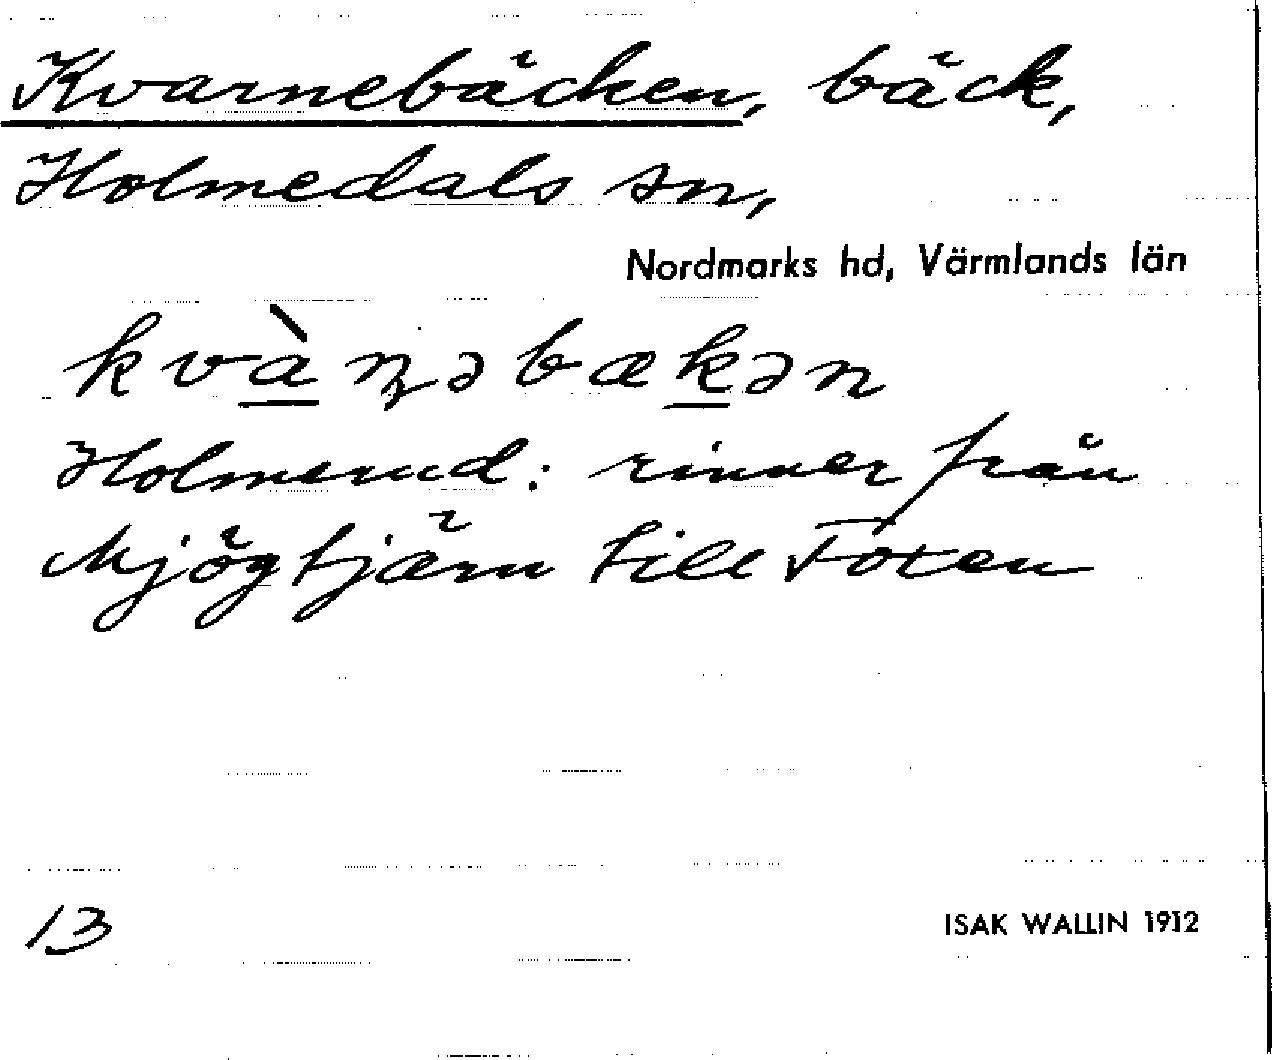 Kvarnebäcken, bäck,
Holmedals sn,
Nordmarks hd, Värmlands län
kvàn̥əbækən
Holmerud: rinner från
Mjögtjärn till Foxen
13
ISAK WALLIN 1912